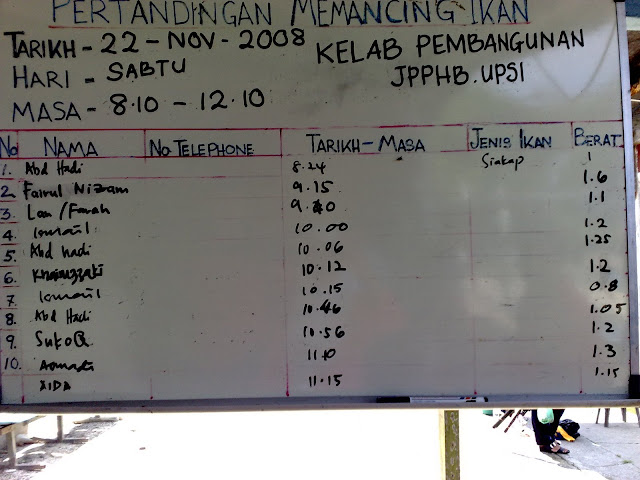 PERTANDINGAN MEMANCING IKAN
TARIKH - 22 - NOV - 2008
HARI = SABTU
MASA - 8.10 - 12.10
KELAB PEMBANGUNAN
JPPHB. UPSI
No NAMA NO TELEPHONE TARIKH - MASA JENIS IKAN BERAT
1. Abd Hadi 8.24 Siakap 1
2. Fairul Nizam 9.15 1.6
3. Lan / Farah 9.40 1.1
4. Ismail 10.00 1.2
5. Abd hadi 10.06 1.25
6. Khairuzzaki 10.12 1.2
7. Ismail 10.15 0.8
8. Abd Hadi 10.46 1.05
9. 10.56 1.2
10. 11.10 1.3
XIDA 11.15 1.15